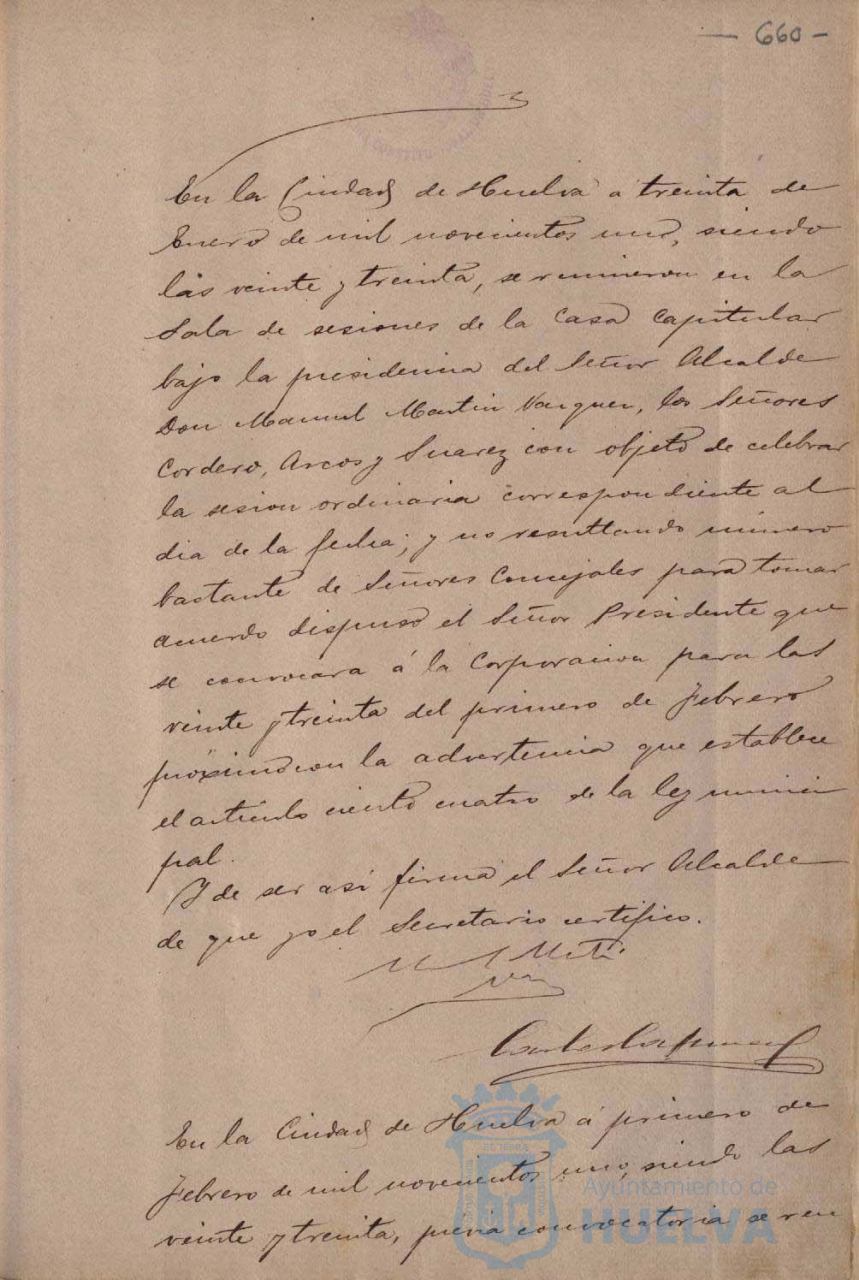 - 660 -
En la Ciudad de Huelva a treinta de
Enero de mil novecientos uno, siendo
las veinte y treinta, se reunieron en la
Sala de sesiones de la Casa Capitular
bajo la presidencia del Señor Alcalde
Don Manuel Martin Vazquez, los Señores
Cordero, Arcos y Suarez con objeto de celebrar
la sesion ordinaria correspondiente al
dia de la fecha; y no resultando número
bastante de Señores Concejales para tomar
acuerdo dispuso el Señor Presidente que
se convocara á la Corporacion para las
veinte y treinta del primero de Febrero
próximo con la advertencia que establece
el artículo ciento cuatro de la ley munici
pal.
Y de ser asi firma el Señor Alcalde
de que yo el Secretario certifico.
En la Ciudad de Huelva á primero de
Febrero de mil novecientos uno, siendo las
veinte y treinta, previa convocatoria se reu
Ayuntamiento de
HUELVA